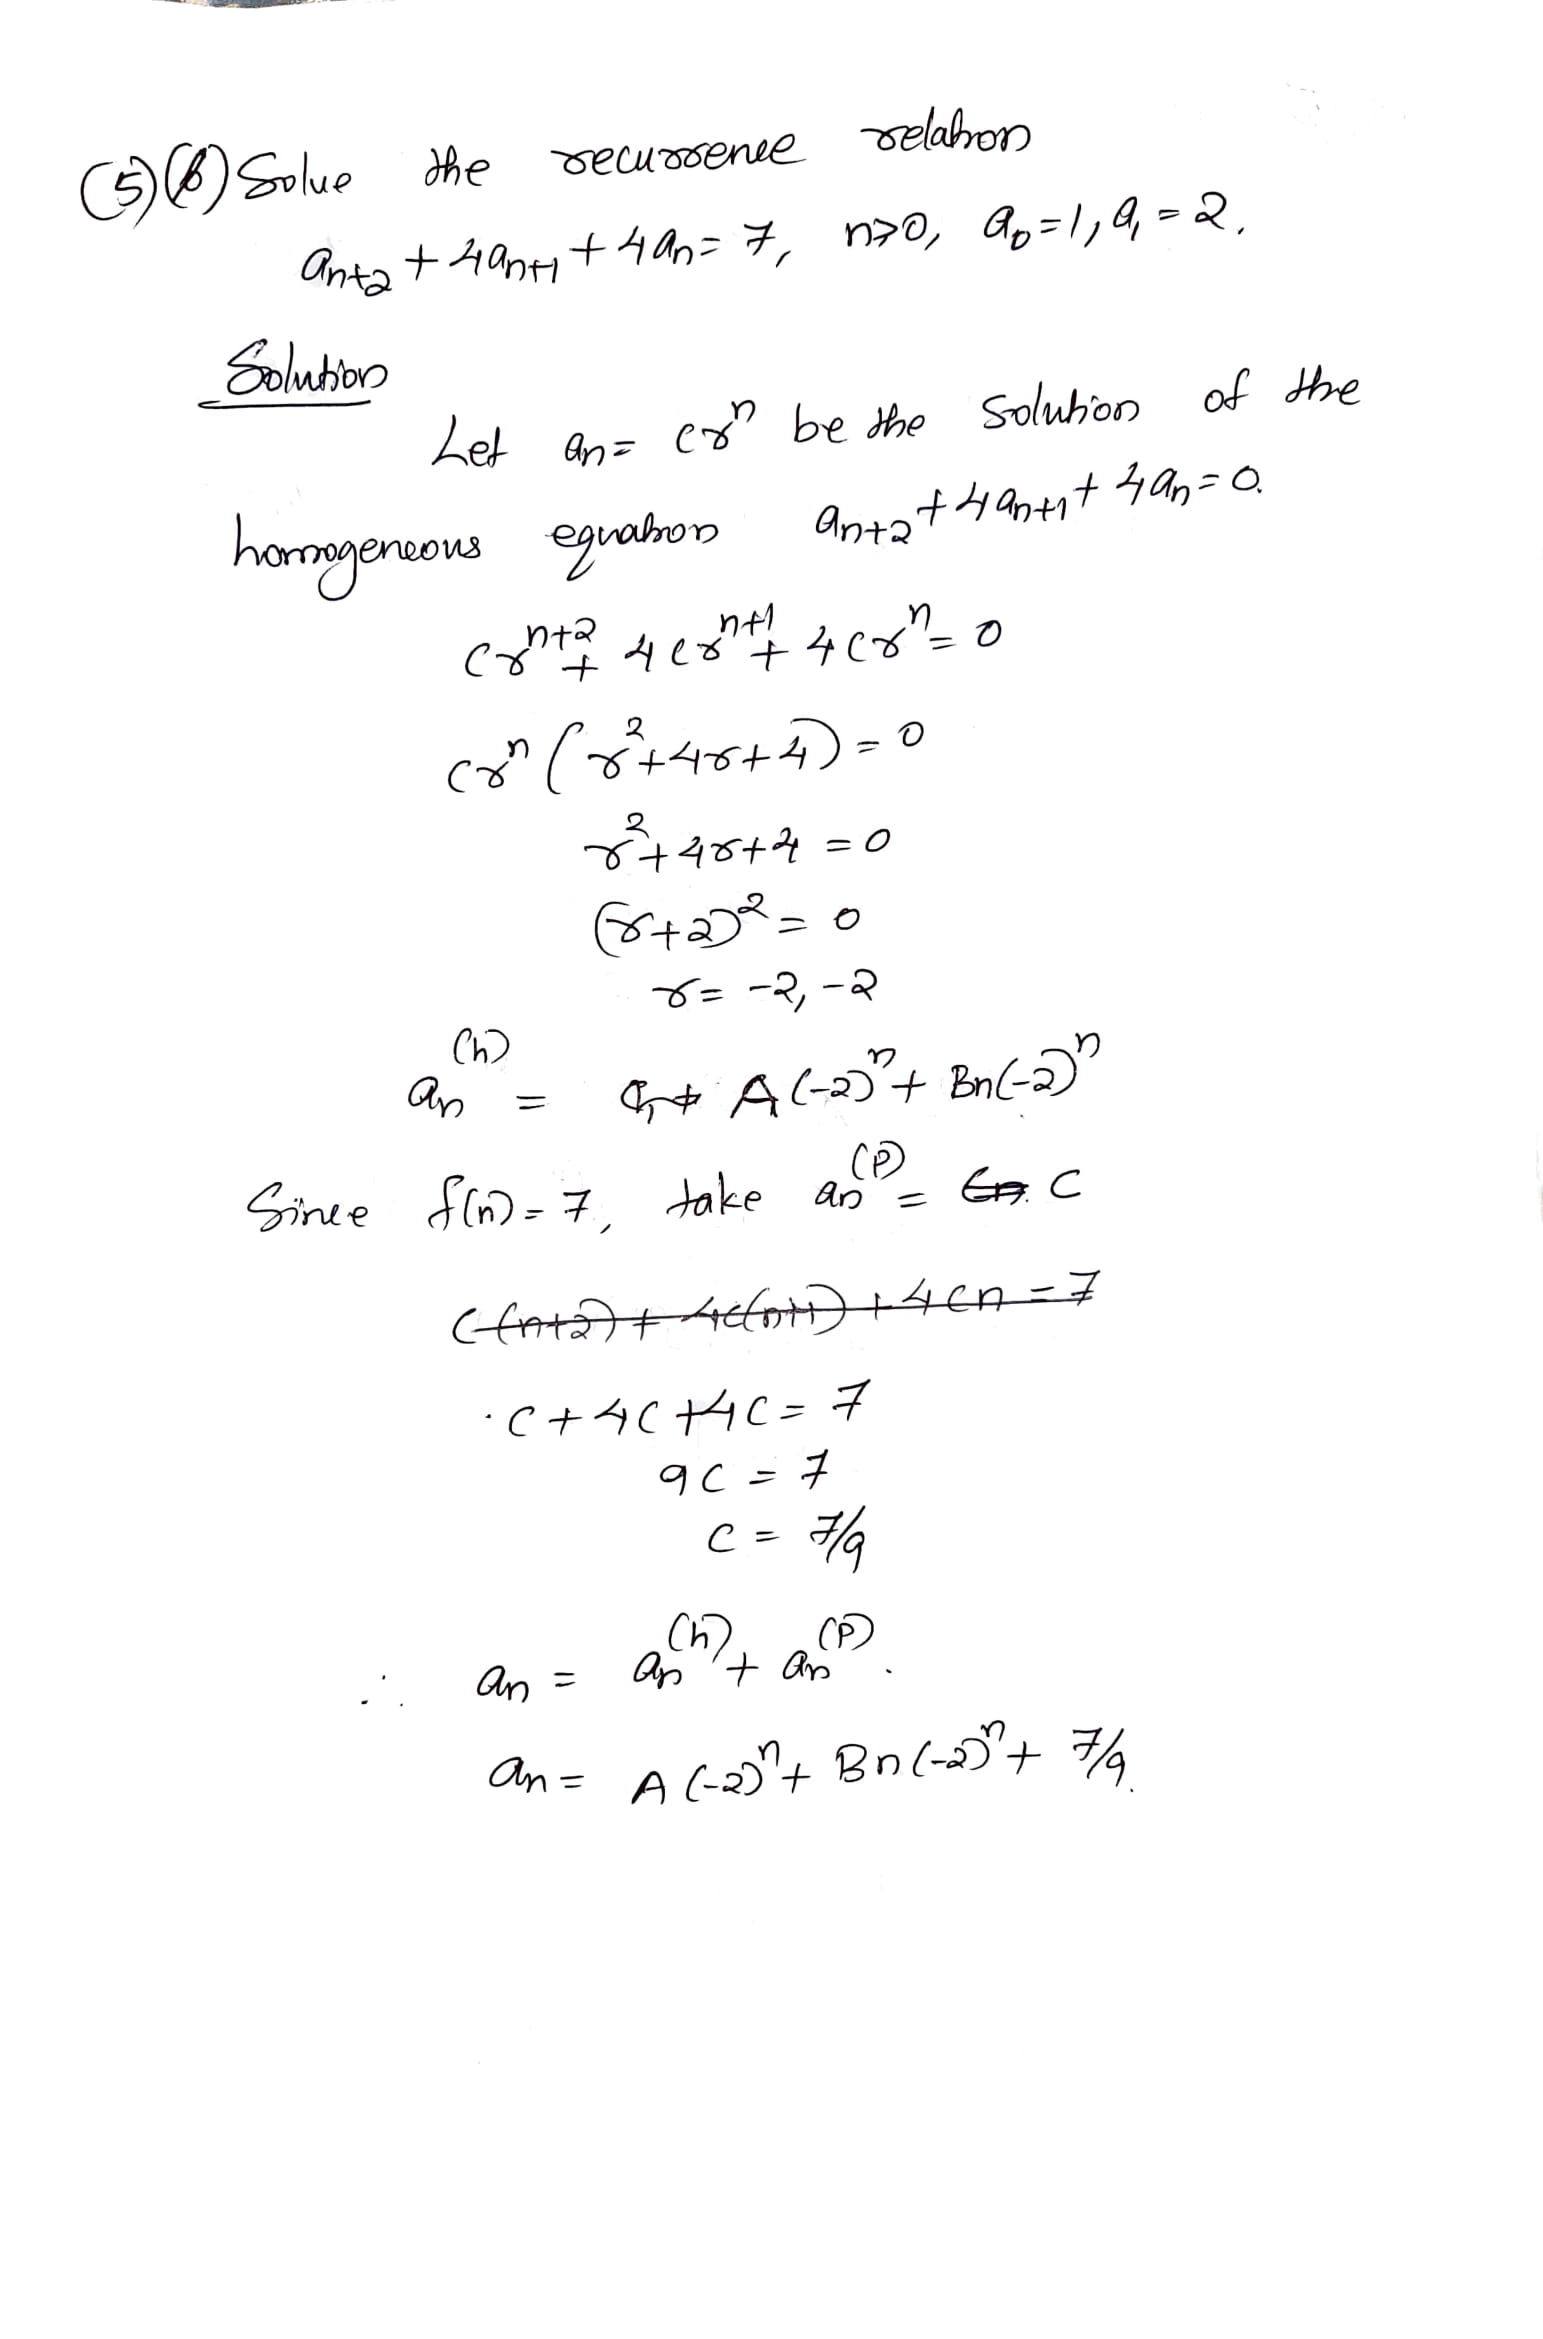 (5)(b) Solve the recurrence relation
an+2 + 4an+1 + 4an = 7, n≥0, a0=1, a1=2.
Solution
Let an = crⁿ be the solution of the
homogeneous equation an+2 + 4an+1 + 4an = 0.
crⁿ⁺² + 4crⁿ⁺¹ + 4crⁿ = 0
crⁿ (r²+4r+4) = 0
r²+4r+4 = 0
(r+2)² = 0
r = -2, -2
an⁽ʰ⁾ = A(-2)ⁿ + Bn(-2)ⁿ
Since f(n) = 7, take an⁽ᵖ⁾ = Cn. C
C(n+2) + 4C(n+1) + 4Cn = 7
C + 4C + 4C = 7
9C = 7
C = 7/9
∴ an = an⁽ʰ⁾ + an⁽ᵖ⁾.
an = A(-2)ⁿ + Bn(-2)ⁿ + 7/9.